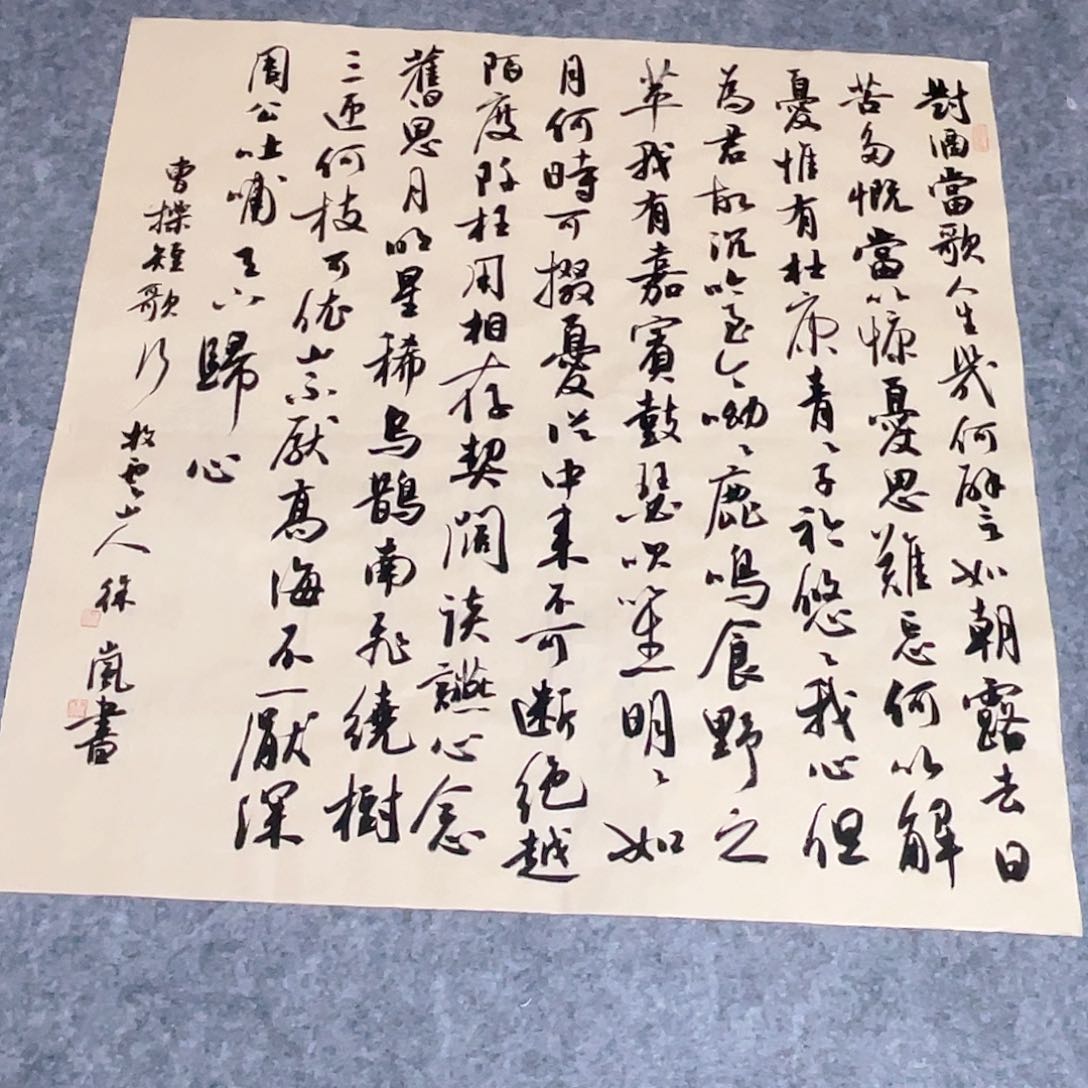 對酒當歌人生幾何譬言如朝露去日
苦多慨當以慷憂思難忘何以解
憂惟有杜康青〻子衿悠〻我心但
為君故沉吟至今呦〻鹿鳴食野之
苹我有嘉賓鼓瑟吹笙明〻如
月何時可掇憂從中来不可断絶越
陌度阡枉用相存契闊談讌心念
舊恩月明星稀烏鵲南飛繞樹
三匝何枝可依山不厭髙海不厭深
周公吐哺天下歸心
曹操短歌行 牧雲山人 徐嵐書